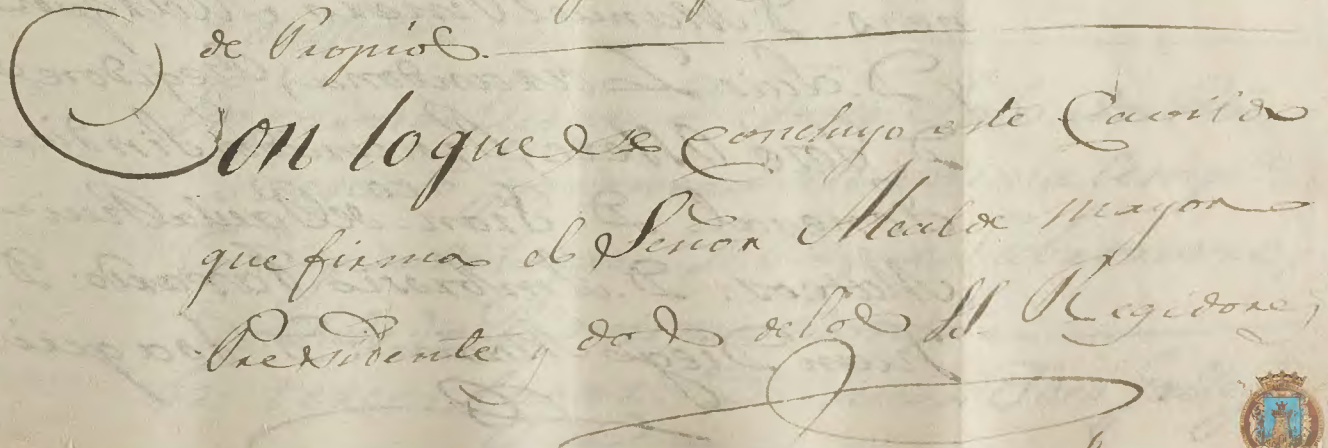 de Propios.
Con loque se concluyo este Cavildo
que firma el Señor Alcalde mayor
Presidente y dos de los SS. Regidores,